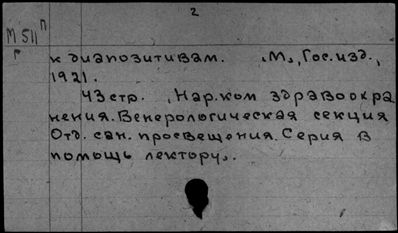 2
М 511 п
г
к диапозитивам. "М", Гос. изд.,
1921.
43 стр. "Нар. ком здравоохра
нения. Венерологическая секция
Отд. сан. просвещения. Серия в
помощь лектору".